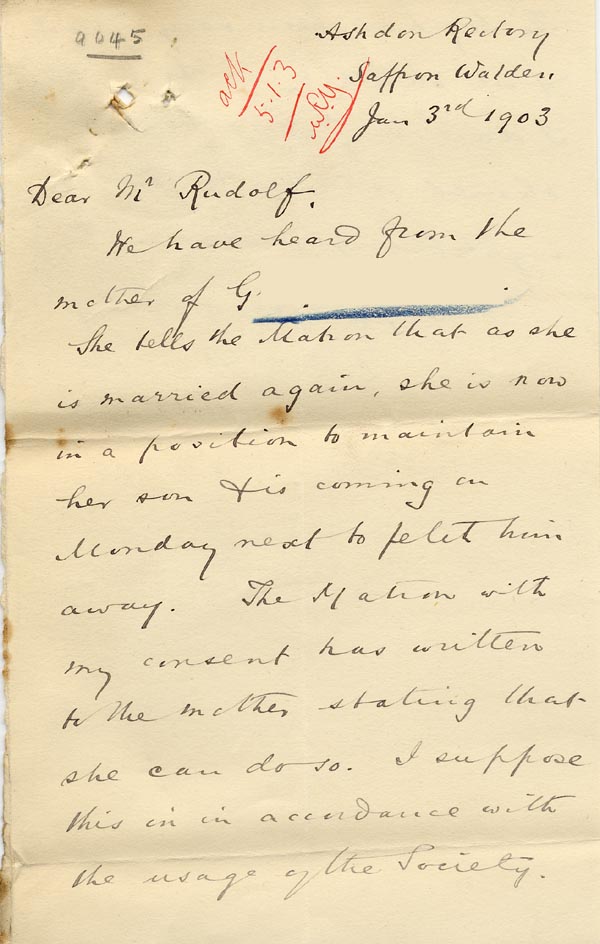 9645
Ashdon Rectory
Saffron Walden
Jan 3rd 1903
ack
5.1.3
Dear Mr Rudolf.
We have heard from the
mother of G.
She tells the Matron that as she
is married again, she is now
in a position to maintain
her son & is coming on
Monday next to fetch him
away. The Matron with
my consent has written
to the mother stating that
she can do so. I suppose
this in in accordance with
the usage of the Society.